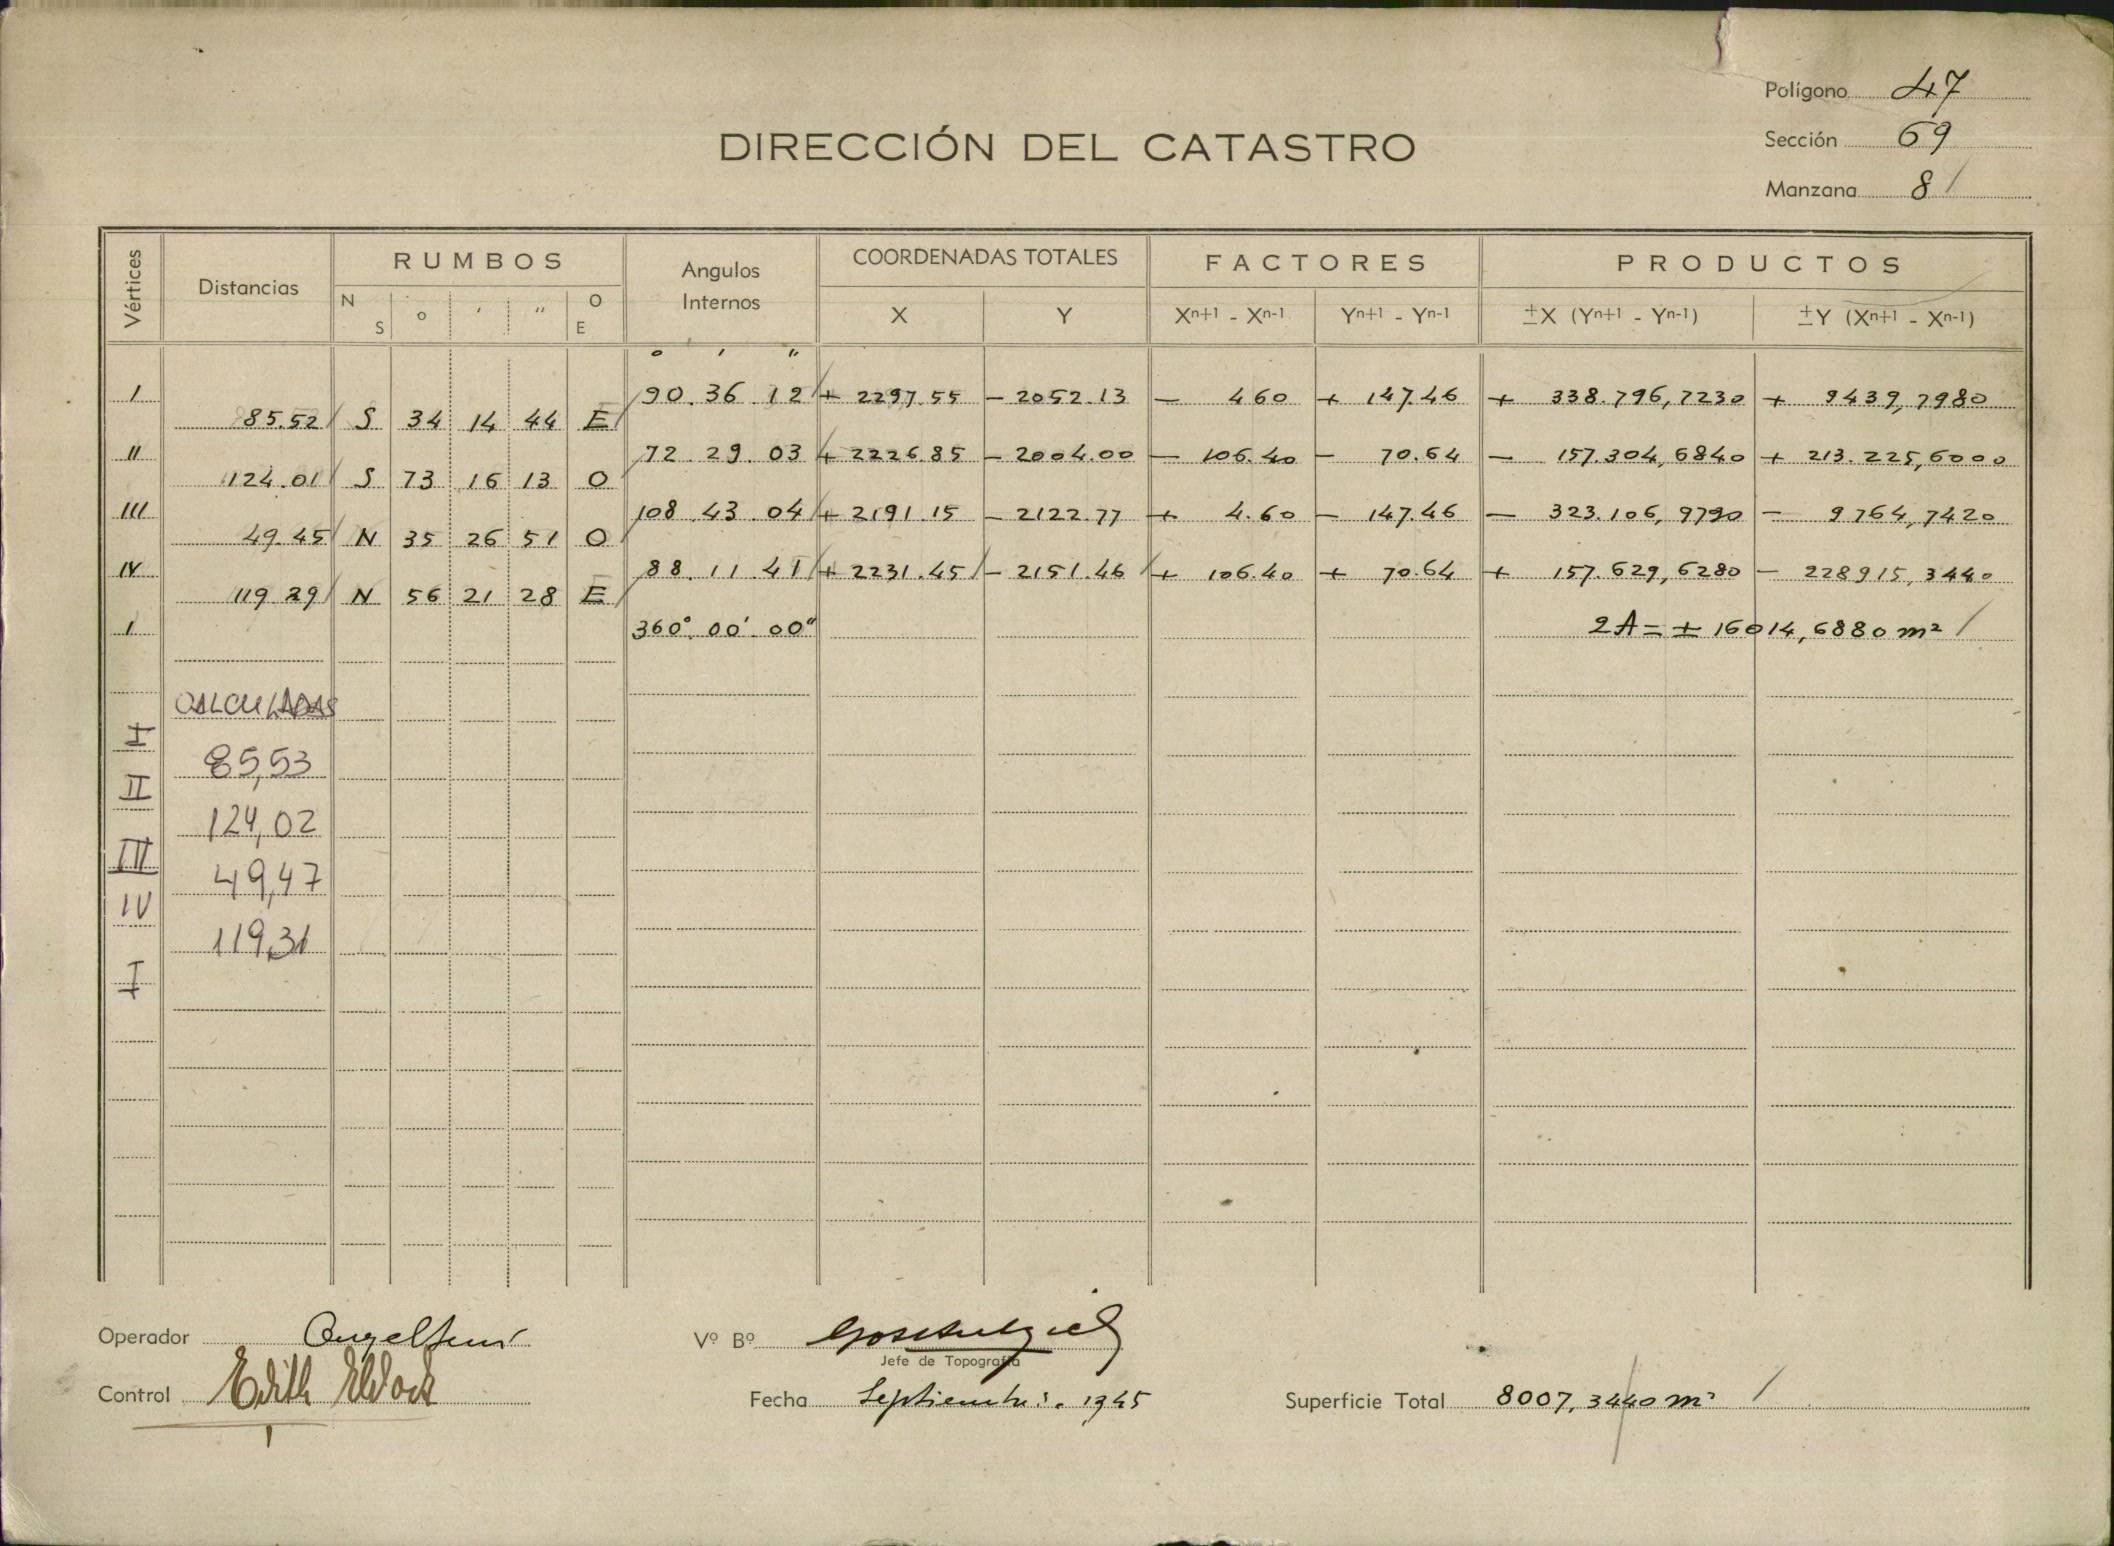 Polígono 47
DIRECCIÓN DEL CATASTRO
Sección 69
Manzana 8
Vértices Distancias RUMBOS Angulos Internos COORDENADAS TOTALES FACTORES PRODUCTOS
N S o ' " O E X Y Xn+1 - Xn-1 Yn+1 - Yn-1 ±X (Yn+1 - Yn-1) ±Y (Xn+1 - Xn-1)
o ' "
I 90.36.12 + 2297.55 - 2052.13 - 460 + 147.46 + 338.796,7230 + 9439,7980
85.52 S 34 14 44 E
II 72.29.03 + 2226.85 - 2004.00 - 106.40 - 70.64 - 157.304,6840 + 213.225,6000
124.01 S 73 16 13 O
III 108.43.04 + 2191.15 - 2122.77 + 4.60 - 147.46 - 323.106,9790 - 9764,7420
49.45 N 35 26 51 O
IV 88.11.41 + 2231.45 - 2151.46 + 106.40 + 70.64 + 157.629,6280 - 228915,3440
119.29 N 56 21 28 E
I 360°.00'.00" 2A = ± 16014,6880 m²
CALCULADAS
I
85,53
II
124,02
III
49,47
IV
119,31
I
Operador
Vº Bº
Jefe de Topografía
Control Edith
Fecha Septiembre 1945
Superficie Total 8007,3440 m²